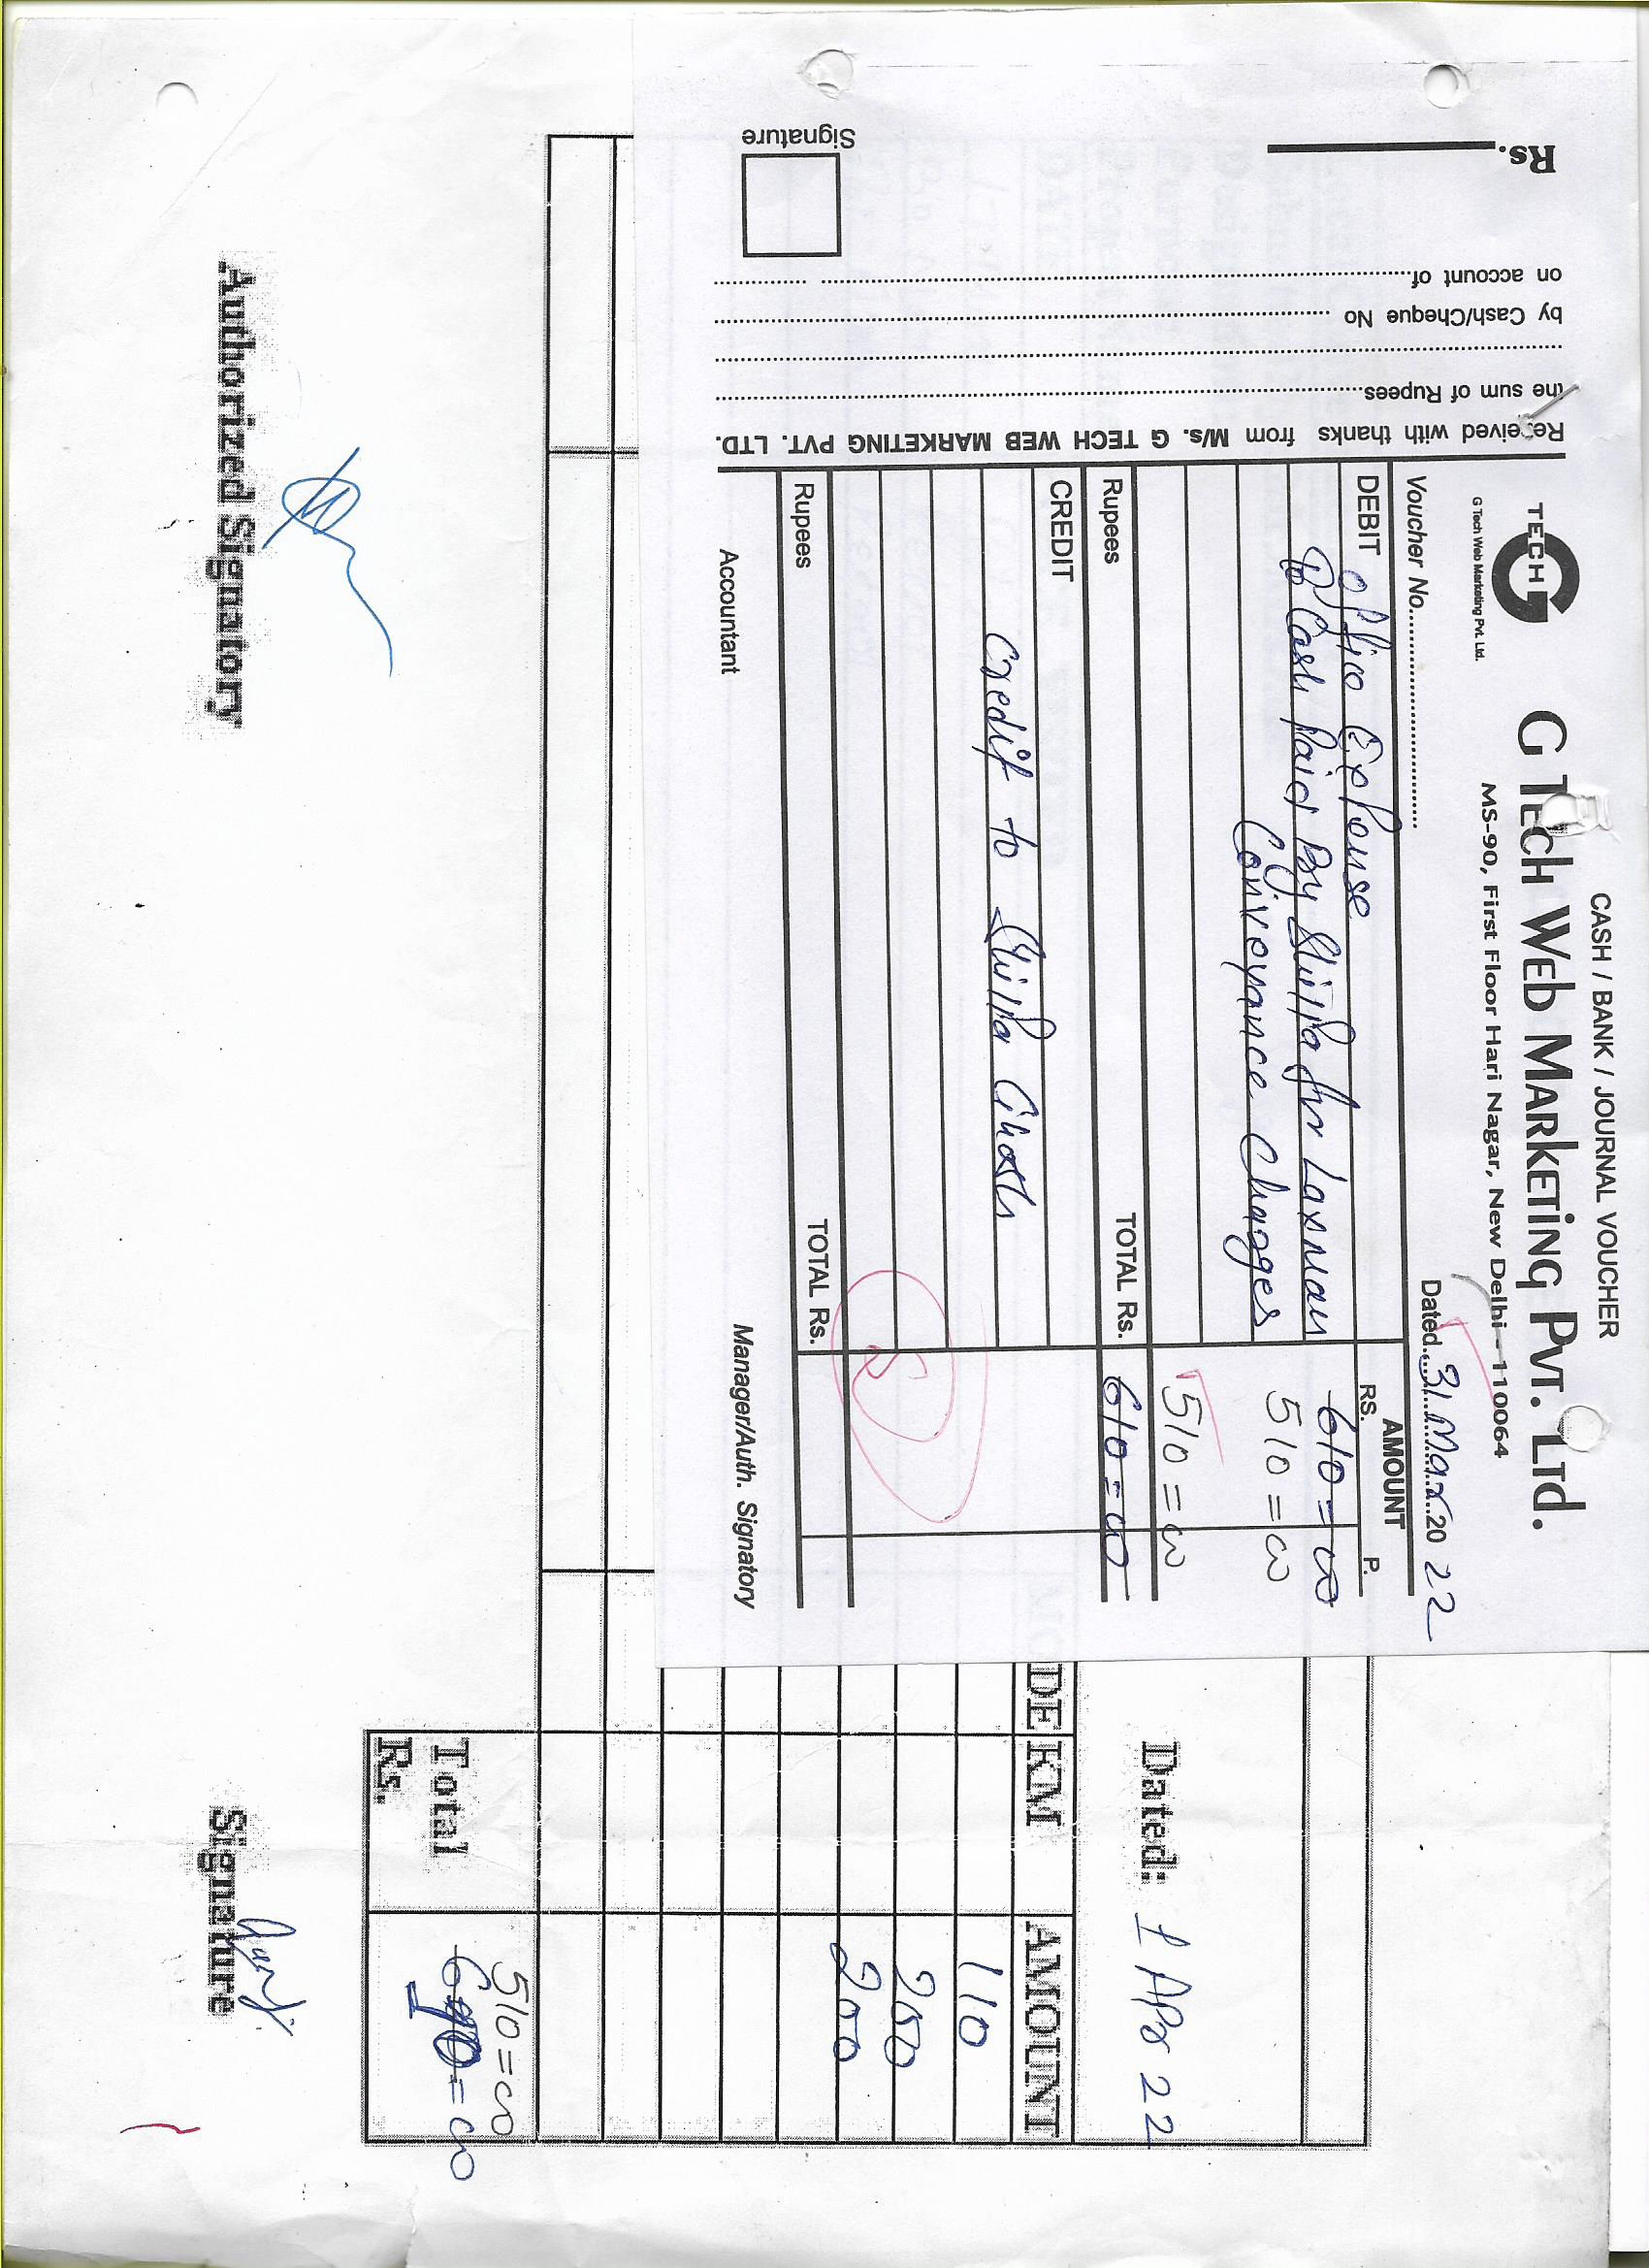 CASH / BANK / JOURNAL VOUCHER
TECH G
G Tech Web Marketing Pvt. Ltd.
G TECH WEB MARKETING PVT. LTD.
MS-90, First Floor Hari Nagar, New Delhi - 110064
Voucher No. Dated 31 Mar 20 22
AMOUNT
DEBIT RS. P.
Office Expense 610=00
To Cash Paid By Shilpa for Laxman
Convoyance Chagges 510=00
510=00
Rupees TOTAL Rs. 610=00
CREDIT
Credit to Shilpa Ghosh
Rupees TOTAL Rs.
Accountant Manager/Auth. Signatory
Received with thanks from M/s. G TECH WEB MARKETING PVT. LTD.
the sum of Rupees
by Cash/Cheque No
on account of
Rs.
Signature
Dated: 1 Apr 22
DE KM AMOUNT
110
200
200
510=00
Total
Rs.
Authorized Signatory Signature